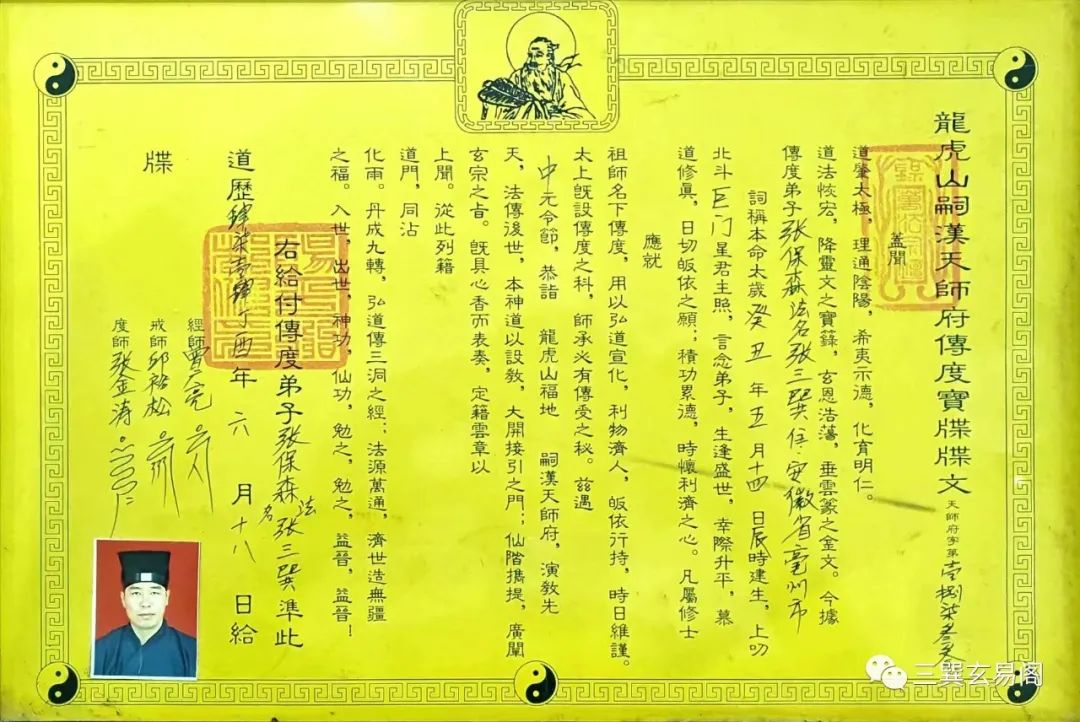 龍虎山嗣漢天師府傳度寶牒牒文 天師府字第壹捌柒叁
蓋聞
道肇太極，理通陰陽，希夷示德，化育明仁。
道法恢宏，降靈文之寶籙，玄恩浩蕩，垂雲篆之金文。今據
傳度弟子張保森法名張三巽住：安徽省亳州市
詞稱本命太歲癸丑年五月十四日辰時建生，上叨
北斗巨门星君主照，言念弟子，生逢盛世，幸際升平，慕
道修眞，日切皈依之願；積功累德，時懷利濟之心。凡屬修士
應就
祖師名下傳度，用以弘道宣化，利物濟人，皈依行持，時日維謹。
太上旣設傳度之科，師承必有傳受之秘。玆遇
中元令節，恭詣 龍虎山福地 嗣漢天師府，演敎先
天，法傳後世，本神道以設敎，大開接引之門；仙階攜提，廣闡
玄宗之旨。旣具心香而表奏，定籍雲章以
上聞。從此列籍
道門，同沾
化雨。丹成九轉，弘道傳三洞之經；法源萬通，濟世造無疆
之福。入世，出世，神功，仙功，勉之，勉之，益晉，益晉！
右給付傳度弟子張保森法名張三巽準此
道歷肆柒壹肆丁酉年六月十八日給
牒
經師
戒師邱裕松
度師張金涛
三巽玄易阁